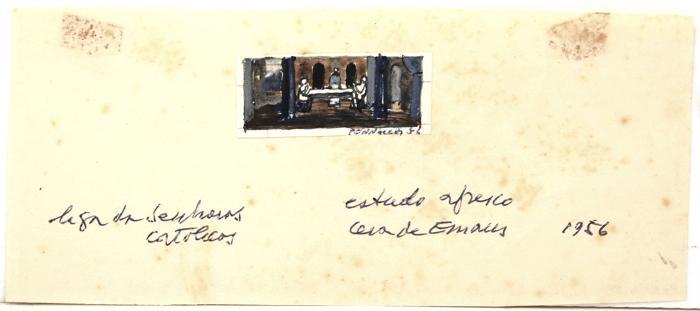 PENNACCHI 56
liga das Senhoras
catolicas
estudo afresco
Ceia de Emaus 1956